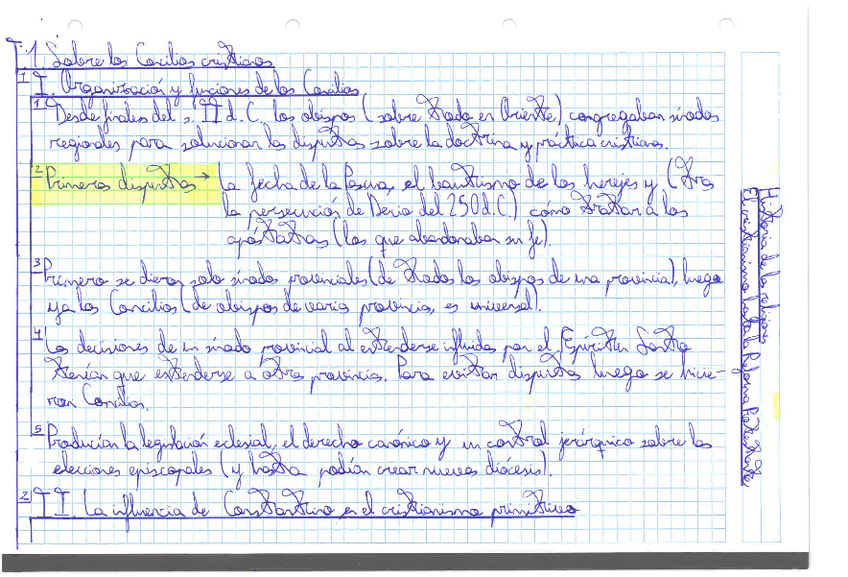 T.1. Sobre los Concilios cristianos
1 I. Organización y funciones de los Concilios
1 Desde finales del s. II d.C. los obispos (sobre todo en Oriente) congregaban sínodos
regionales para solucionar las disputas sobre la doctrina y práctica cristianas.
2 Primeras disputas → La fecha de la Pascua, el bautismo de los herejes y (tras
la persecución de Decio del 250 d.C.) cómo tratar a los
apóstatas (los que abandonaban su fe).
3 Primero se dieron solo sínodos provinciales (de todos los obispos de una provincia), luego
ya los Concilios (de obispos de varias provincias, es universal).
4 Las decisiones de un sínodo provincial al entenderse influidas por el Espíritu Santo
tenían que extenderse a otras provincias. Para evitar disputas luego se hicie-
ron Concilios.
5 Producían la legislación eclesial, el derecho canónico y un control jerárquico sobre las
elecciones episcopales (y hasta podían crear nuevas diócesis).
2 II. La influencia de Constantino en el cristianismo primitivo
Historia de las religiones
El cristianismo hasta la Reforma Protestante